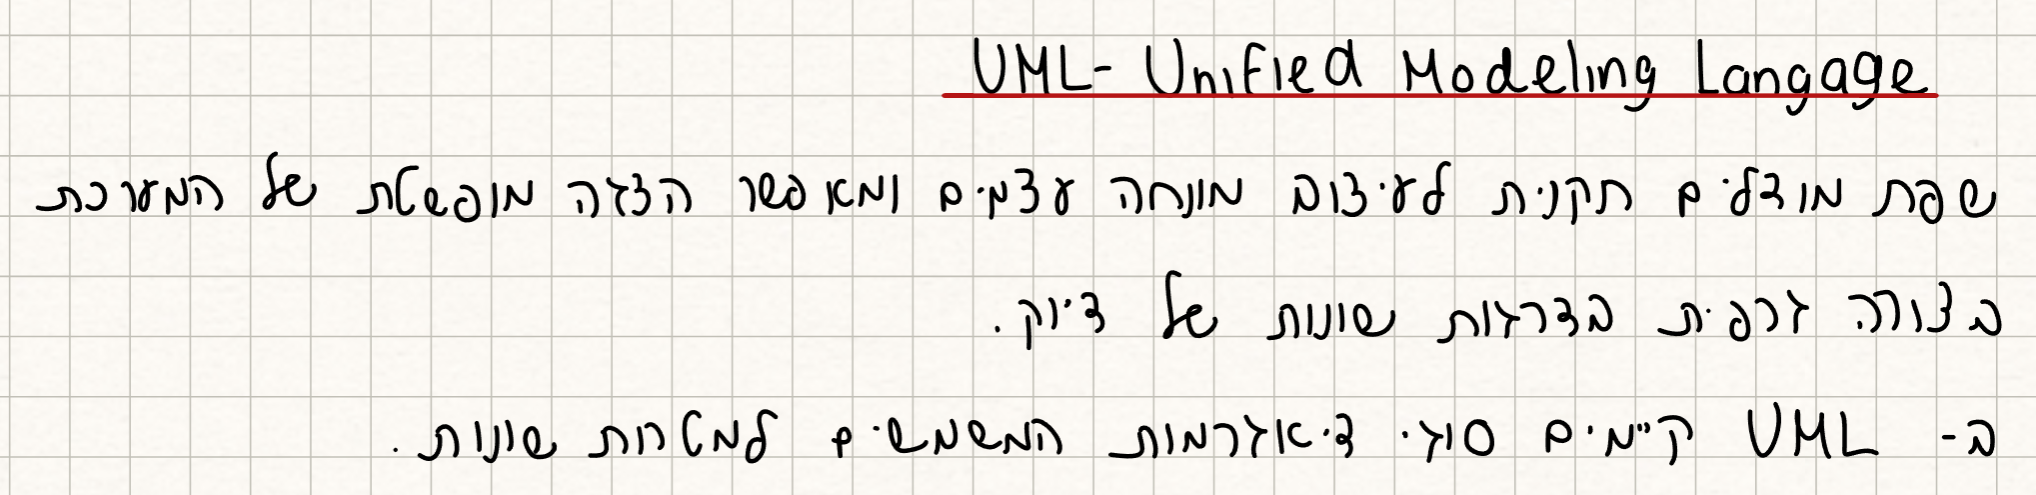 UML- Unified Modeling Langage
שפת מודלים תקנית לעיצוב מונחה עצמים ומאפשר הצגה מופשטת של המערכת
בצורה גרפית בדרגות שונות של דיוק.
ב- UML קיימים סוגי דיאגרמות המשמשים למטרות שונות.